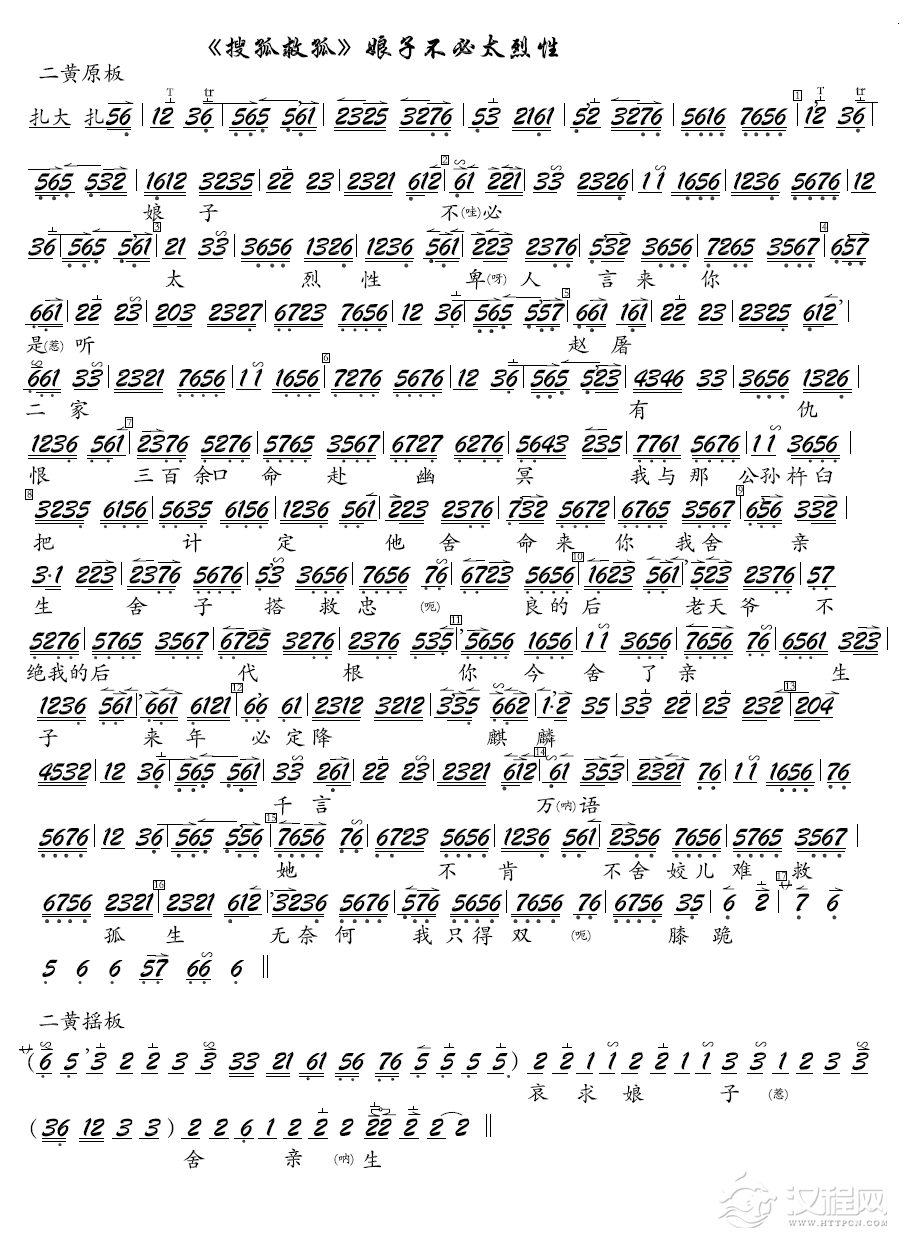 《搜孤救孤》娘子不必太烈性
二黄原板
扎大 扎 56 | 12 36 | 565 561 | 2325 3276 | 53 2161 | 52 3276 | 5616 7656 | 12 36 |
565 532 | 1612 3235 | 22 23 | 2321 612 | 61 221 | 33 2326 | 11 1656 | 1236 5676 | 12
娘 子 不(哇)必
36 | 565 561 | 21 33 | 3656 1326 | 1236 561 | 223 2376 | 532 3656 | 7265 3567 | 657
太 烈 性 卑(呀)人 言 来 你
661 | 22 23 | 203 2327 | 6723 7656 | 12 36 | 565 557 | 661 161 | 22 23 | 2325 612 |
是(惹)听 赵 屠
661 33 | 2321 7656 | 11 1656 | 7276 5676 | 12 36 | 565 523 | 4346 33 | 3656 1326 |
二 家 有 仇
1236 561 | 2376 5276 | 5765 3567 | 6727 6276 | 5643 235 | 7761 5676 | 11 3656 |
恨 三百余口 命 赴 幽 冥 我与那 公孙杵臼
3235 6156 | 5635 6156 | 1236 561 | 223 2376 | 732 5672 | 6765 3567 | 656 332 |
把 计 定 他 舍 命 来 你 我 舍 亲
3·1 223 | 2376 5676 | 53 3656 | 7656 76 | 6723 5656 | 1623 561 | 523 2376 | 57
生 舍 子 搭 救 忠 (呃) 良的后 老天爷 不
5276 | 5765 3567 | 6725 3276 | 2376 535 | 5656 1656 | 11 3656 | 7656 76 | 6561 323 |
绝我的后 代 根 你 今 舍 了 亲 生
1236 561 | 661 6121 | 66 61 | 2312 3212 | 335 662 | 1·2 35 | 33 22 | 23 232 | 204
子 来 年 必 定 降 麒 麟
4532 | 12 36 | 565 561 | 33 261 | 22 23 | 2321 612 | 61 353 | 2321 76 | 11 1656 | 76
千 言 万(呐)语
5676 | 12 36 | 565 556 | 7656 76 | 6723 5656 | 1236 561 | 2356 7656 | 5765 3567 |
她 不 肯 不 舍 姣 儿 难 救
6756 2321 | 2321 612 | 3236 5656 | 576 5656 | 7656 76 | 6756 35 | 6 2 | 7 6
孤 生 无奈何 我只得双 (呃) 膝 跪
5 6 6 57 66 6 ‖
二黄摇板
(6 5 3 2 2 3 3 33 21 61 56 76 5 5 5 5) 2 2 1 1 2 2 1 1 3 3 1 2 3 3
哀 求 娘 子 (惹)
(36 12 3 3) 2 2 6 1 2 2 2 22 2 2 2 ‖
舍 亲 (呐) 生
汉程网
WWW.HTTPCN.COM